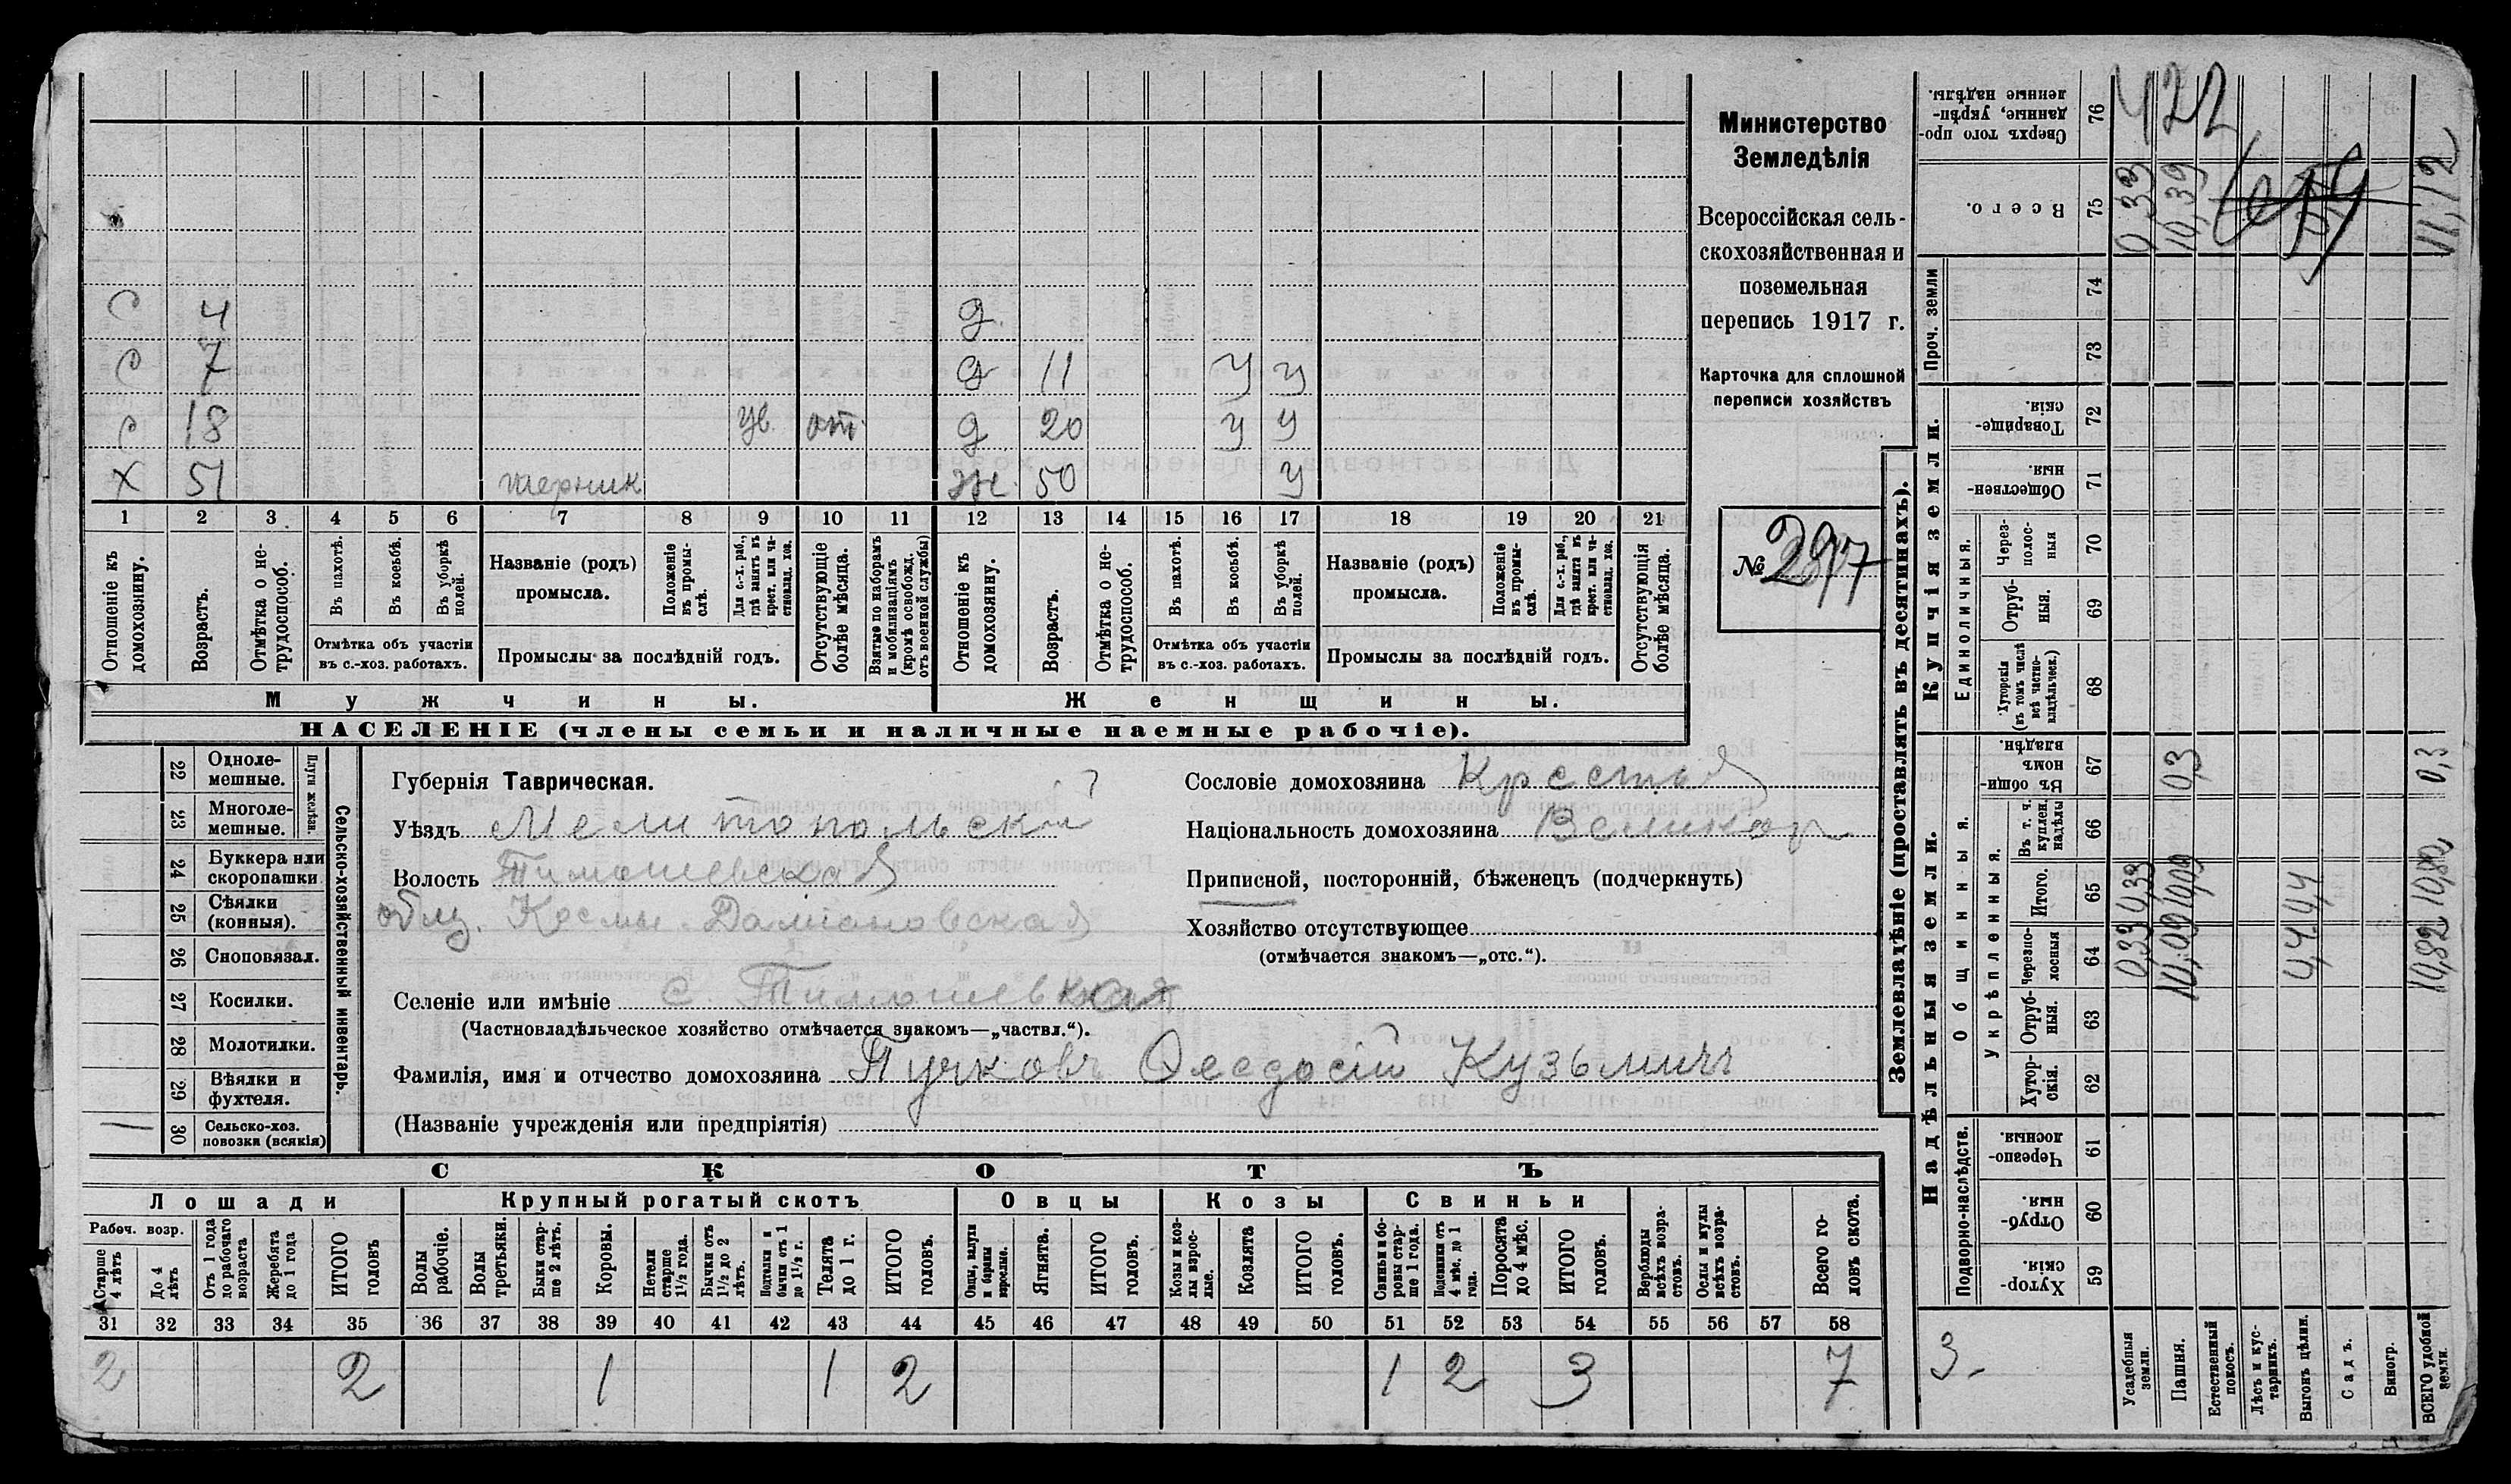 С 4 д.
С 7 д 11 у у
С 18 ув. от. д 20 у у
Х 51 Ж. 50 у
1 2 3 4 5 6 7 8 9 10 11 12 13 14 15 16 17 18 19 20 21
Отношеніе къ домохозяину.
Возрастъ.
Отмѣтка о не-трудоспособ.
Въ пахотѣ.
Въ косьбѣ.
Въ уборкѣ полей.
Отмѣтка объ участіи
въ с.-хоз. работахъ.
Названіе (родъ)
промысла.
Положеніе въ промы-слѣ.
Для с.-х. раб., гдѣ занятъ въ крест. или ча-стновлад. хоз.
Промыслы за послѣдній годъ.
Отсутствующіе болѣе мѣсяца.
Взятые по наборамъ и мобилизаціямъ (кромѣ освобожд. отъ военной службы)
Отношеніе къ домохозяину.
Возрастъ.
Отмѣтка о не-трудоспособ.
Въ пахотѣ.
Въ косьбѣ.
Въ уборкѣ полей.
Отмѣтка объ участіи
въ с.-хоз. работахъ.
Названіе (родъ)
промысла.
Положеніе въ промы-слѣ.
Для с.-х. раб., гдѣ занята въ крест. или ча-стновлад. хоз.
Промыслы за послѣдній годъ.
Отсутствующія болѣе мѣсяца.
Мужчины.
Женщины.
НАСЕЛЕНІЕ (члены семьи и наличные наемные рабочіе).
Министерство
Земледѣлія
Всероссійская сель-
скохозяйственная и
поземельная
перепись 1917 г.
Карточка для сплошной
переписи хозяйствъ
№ 297
Сельско-хозяйственный инвентарь.
Плуги желѣзн.
22 Одноле-
мешные.
23 Многоле-
мешные.
24 Буккера или
скоропашки
25 Сѣялки
(конныя).
26 Сноповязал.
27 Косилки.
28 Молотилки.
29 Вѣялки и
фухтеля.
30 Сельско-хоз.
повозки (всякія)
Губернія Таврическая.
Уѣздъ Мелитопольскій
Волость Тимошевская
общ. Косьм. Даміановская
Селеніе или имѣніе с. Тимошевкая
(Частновладѣльческое хозяйство отмѣчается знакомъ—„частвл.“).
Фамилія, имя и отчество домохозяина Пучковъ Ѳеодосій Кузьмичъ
(Названіе учрежденія или предпріятія)
Сословіе домохозяина Крестья
Національность домохозяина Великор
Приписной, посторонній, бѣженецъ (подчеркнуть)
Хозяйство отсутствующее
(отмѣчается знакомъ—„отс.“).
СКОТЪ
Лошади
Крупный рогатый скотъ
Овцы
Козы
Свиньи
Рабоч. возр.
Старше 4 лѣтъ
До 4 лѣтъ
Отъ 1 года до рабочаго возраста
Жеребята до 1 года
ИТОГО головъ
Волы рабочіе.
Волы третьяки.
Быки стар-ше 2 лѣтъ.
Коровы.
Нетели старше 1½ года.
Бычки отъ 1½ до 2 лѣтъ.
Подтелки и бычки отъ 1 до 1½ г.
Телята до 1 г.
ИТОГО головъ.
Овцы, валухи и бараны взрослые.
Ягнята.
ИТОГО головъ.
Козы и коз-лы взрос-лые.
Козлята
ИТОГО головъ.
Свиньи и бо-ровы стар-ше 1 года.
Подсвинки отъ 4 мѣс. до 1 года.
Поросята до 4 мѣс.
ИТОГО головъ.
Верблюды всѣхъ возра-стовъ.
Ослы и мулы всѣхъ возра-стовъ.
Всего го-ловъ скота.
31 32 33 34 35 36 37 38 39 40 41 42 43 44 45 46 47 48 49 50 51 52 53 54 55 56 57 58
2 2 1 1 2 1 2 3 7
Землевладѣніе (проставлять въ десятинахъ).
Надѣльныя земли.
Купчія земли.
Проч. земли
Подворно-наслѣдств.
Общинныя.
Укрѣпленныя.
Единоличныя.
59 Хутор-скія.
60 Отруб-ныя.
61 Черезпо-лосныя.
62 Хутор-скія.
63 Отруб-ныя.
64 Черезпо-лосныя
65 Итого.
66 Въ т. ч. куплен. надѣлы
67 Въ общи-номъ владѣн.
68 Хуторскія (въ томъ числѣ всѣ частно-владѣльческ.)
69 Отруб-ныя.
70 Через-полос-ныя
71 Обществен-ныя.
72 Товарище-скія.
73
74
75 Всего.
76 Сверхъ того про-данные, укрѣп-ленные надѣлы.
3
Усадебныя земли. 0,33 0,33 0,33
Пашня. 10,09 10,09 0,3 10,39
Естественный покосъ.
Лѣсъ и кус-тарникъ.
Выгонъ цѣлин. 0,4 0,4
Садъ.
Виногр.
ВСЕГО удобной земли. 10,82 10,82 0,3 11,12
422